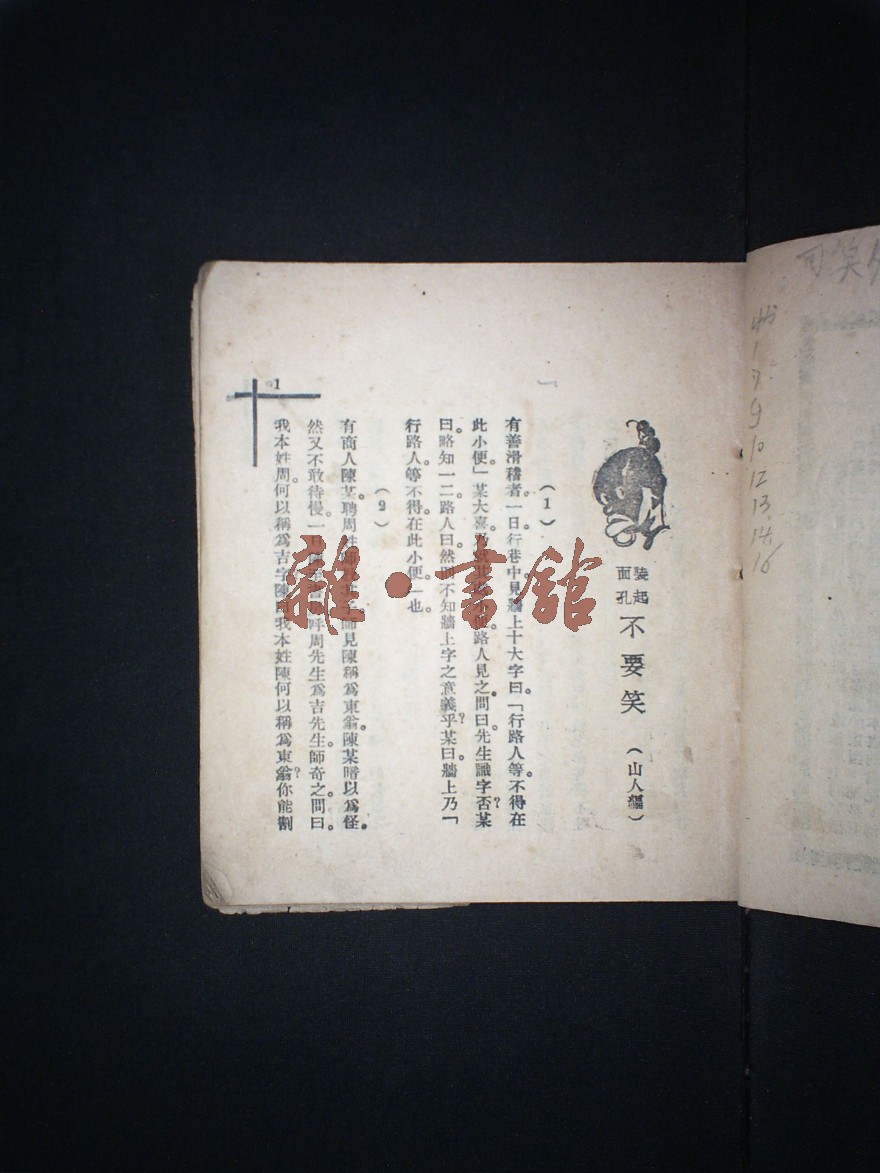 可笑
45
1
7
9
10
12
13
14
16
裝起
面孔
不要笑
（山人編）
（1）
有善滑稽者。一日行巷中見牆上十大字曰。「行路人等不得在
此小便」某大喜。路人見之。問曰先生識字否？某
曰。略知一二路人曰。然則不知牆上字之意義乎？某曰。牆上乃「
行路人。等不得。在此小便。」也。
（2）
有商人陳某。聘周姓師見陳稱爲東翁。陳某暗以爲怪。
然又不敢待慢。一日呼周先生爲吉先生。師奇之。問曰。
我本姓周。何以稱爲吉字陳曰我本姓陳何以稱爲東翁？你能割
1
雜·書館